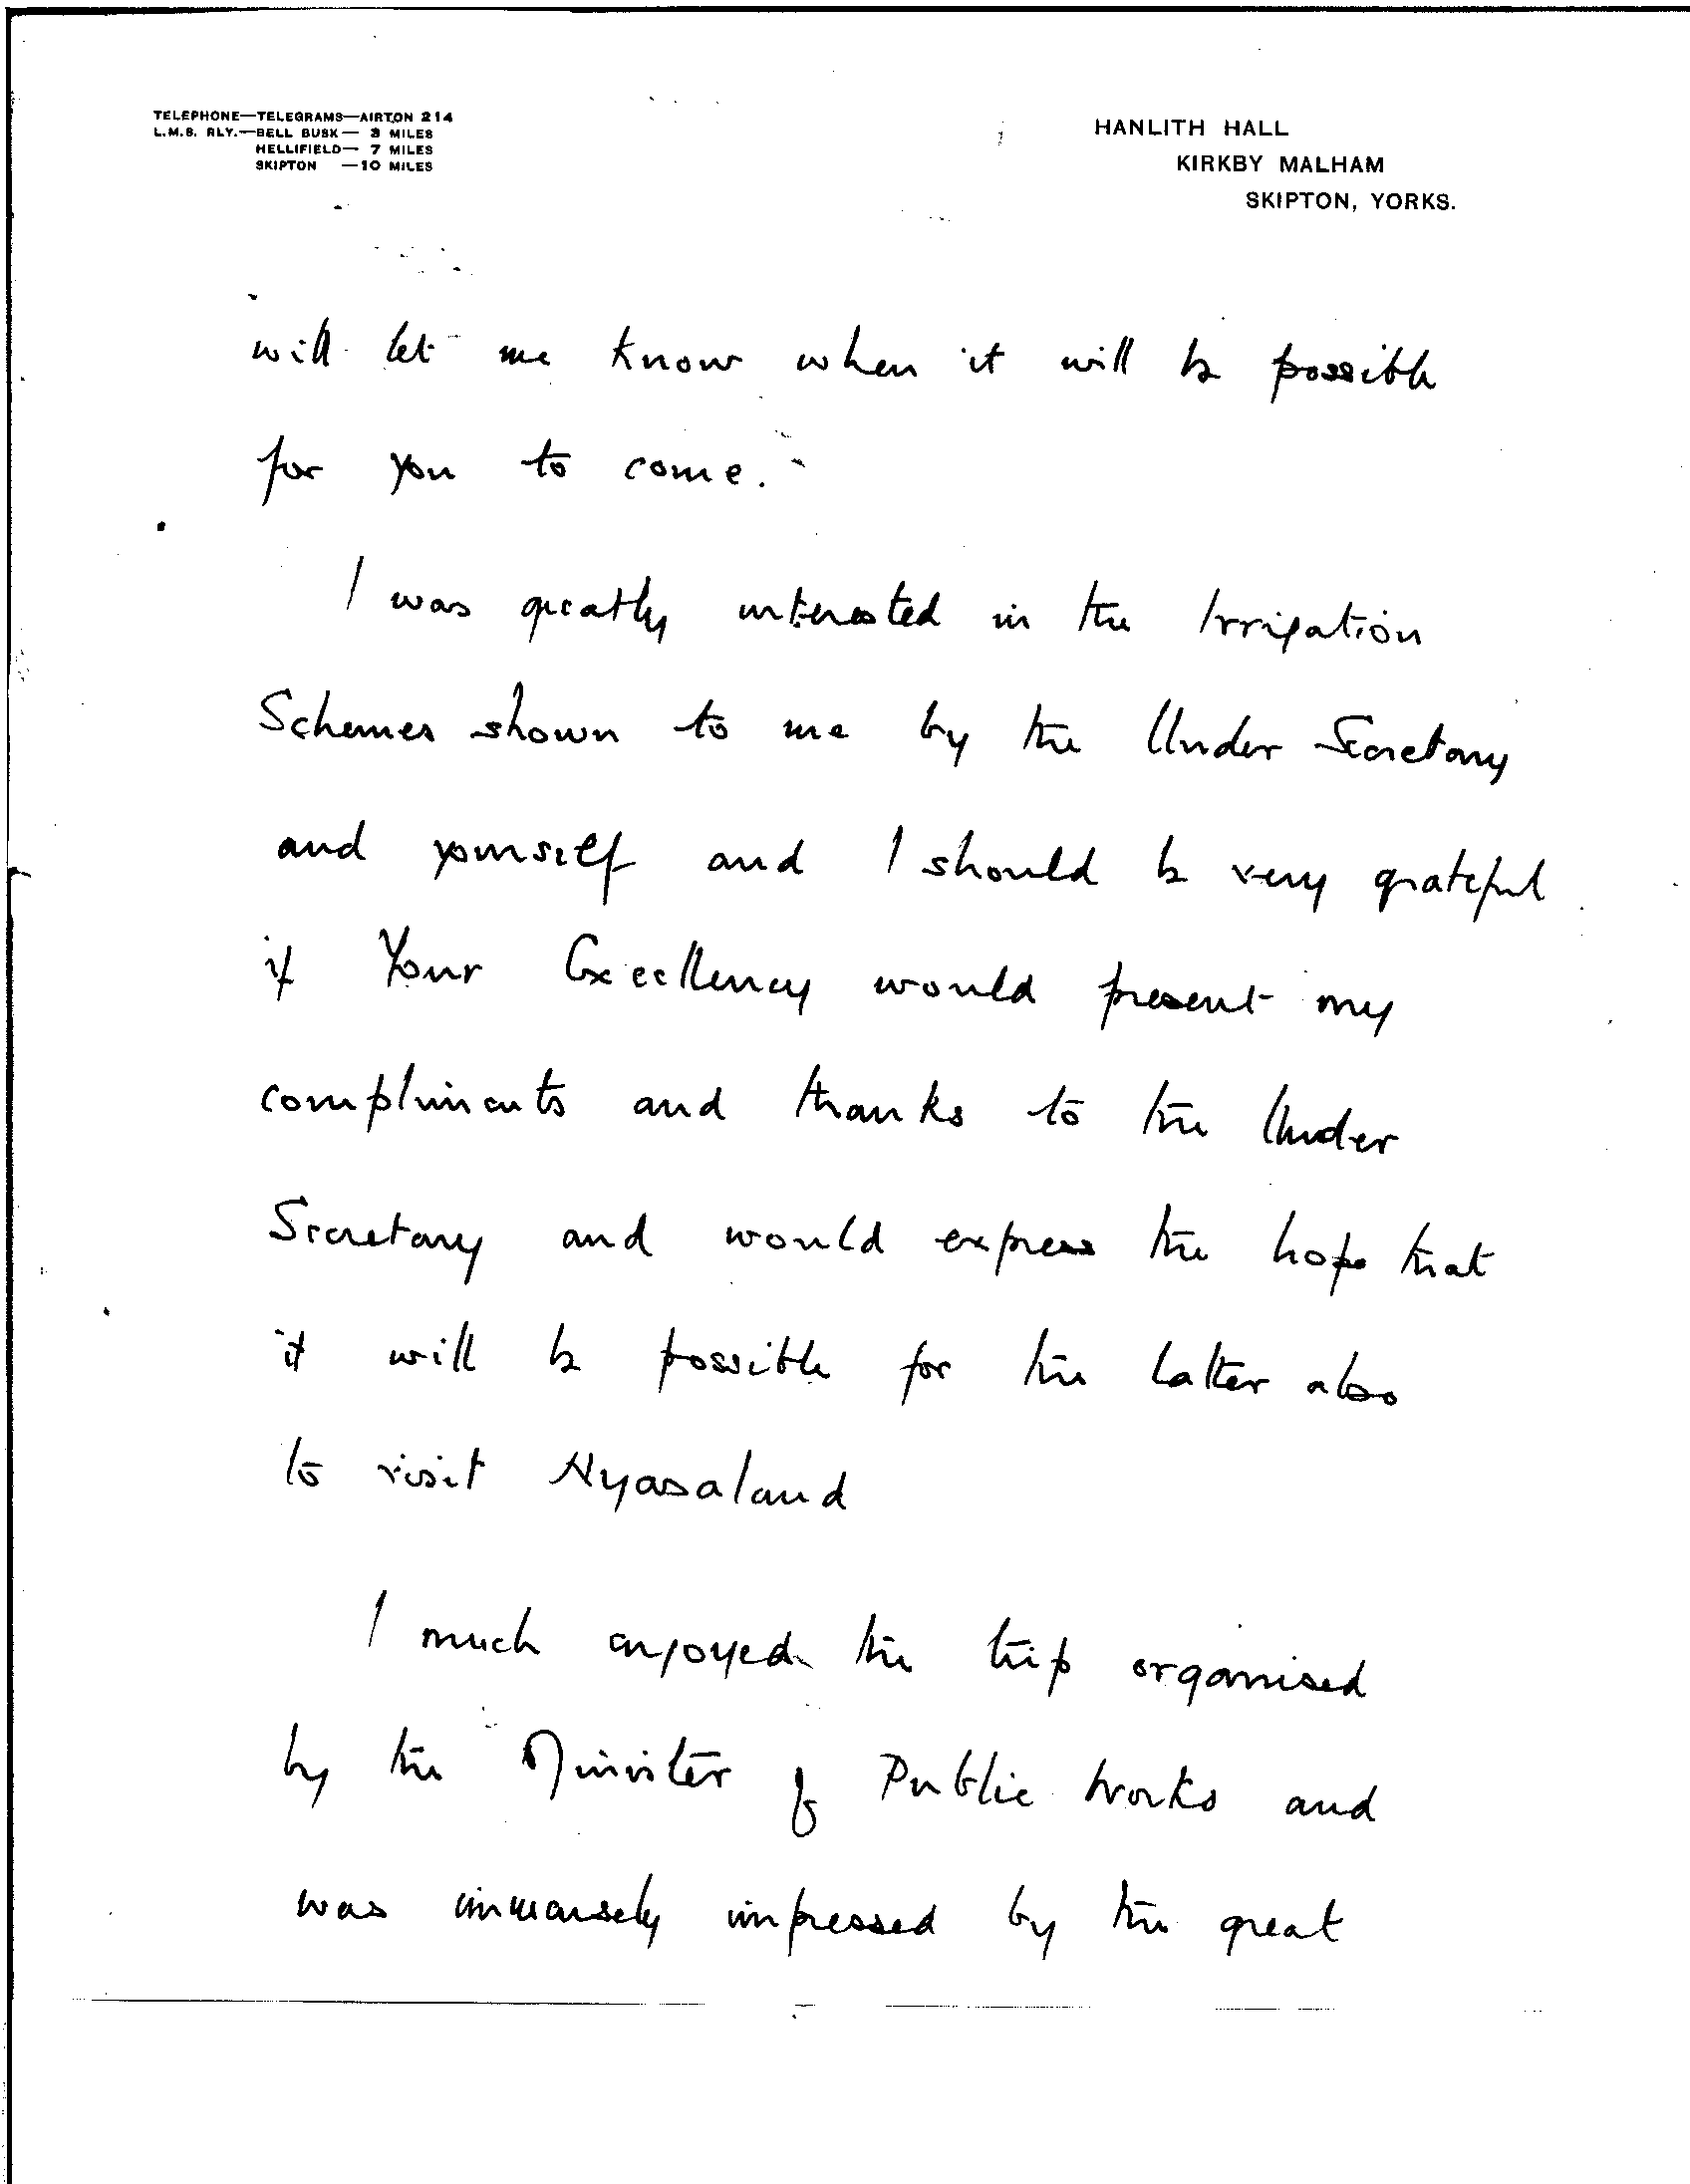 TELEPHONE—TELEGRAMS—AIRTON 214
L.M.S. RLY.—BELL BUSK — 3 MILES
HELLIFIELD— 7 MILES
SKIPTON —10 MILES
HANLITH HALL
KIRKBY MALHAM
SKIPTON, YORKS.
will let me know when it will be possible
for you to come.
I was greatly interested in the Irrigation
Schemes shown to me by the Under Secretary
and yourself and I should be very grateful
if Your Excellency would present my
compliments and thanks to the Under
Secretary and would express the hope that
it will be possible for the latter also
to visit Nyasaland
I much enjoyed the trip organised
by the Minister of Public Works and
was immensely impressed by the great